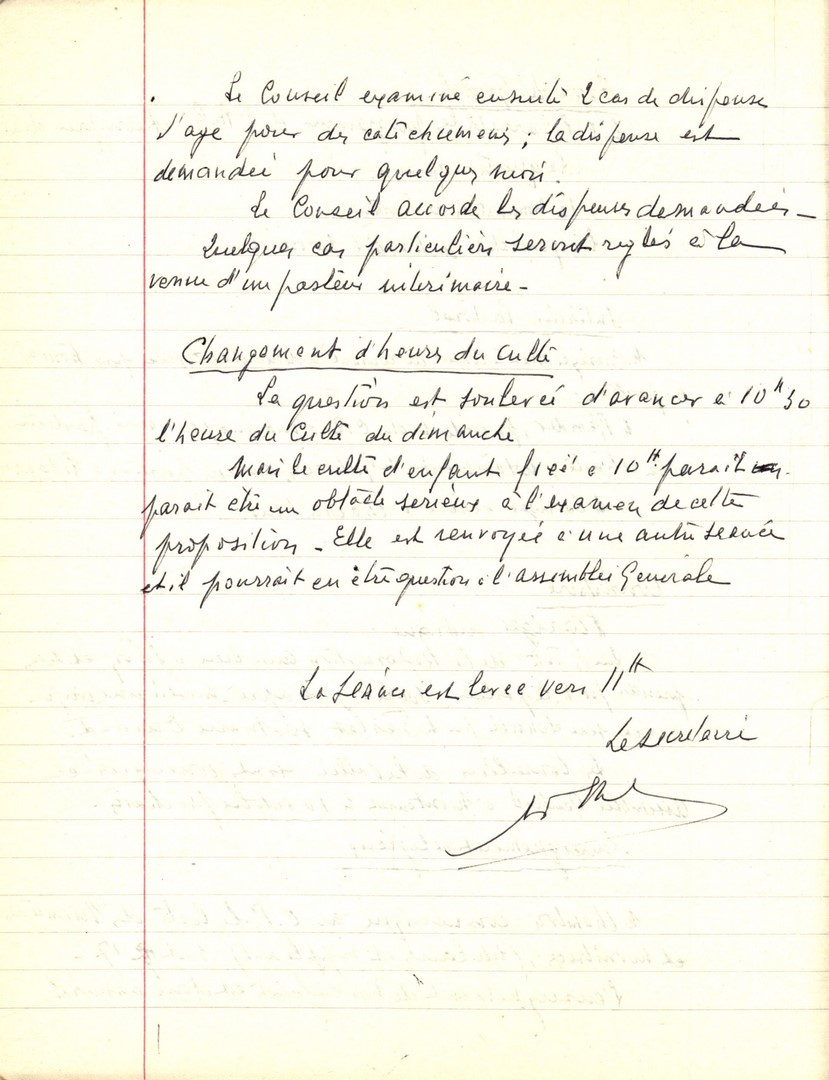 Le Conseil examine ensuite 2 cas de dispense
d'age pour des catéchumenes ; la dispense est
demandée pour quelques mois.
Le Conseil accorde les dispenses demandées -
Quelques cas particuliers seront reglés à la
venue d'un pasteur interimaire -
Changement d'heures du culte
La question est soulevée d'avancer à 10H30
l'heure du Culte du dimanche
Mais le culte d'enfant fixé à 10H parait
parait etre un obstacle serieux à l'examen de cette
proposition - Elle est renvoyée à une autre seance
et il pourrait en être question à l'assemblée Generale
La Séance est levee vers 11H
Le secretaire